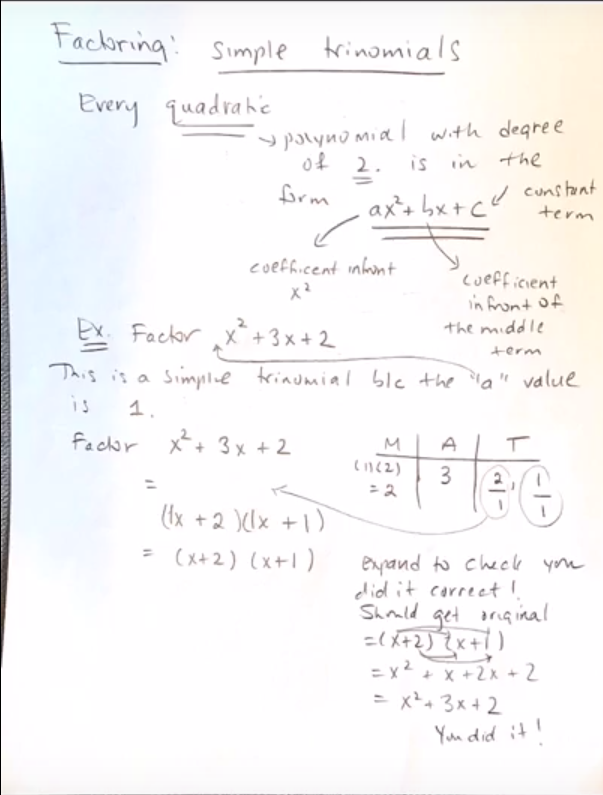 Factoring: simple trinomials
Every quadratic
→ polynomial with degree
of 2. is in the
form ax²+bx+c
constant
term
coefficent infront
x²
coefficient
infront of
the middle
term
Ex. Factor x²+3x+2
This is a simple trinomial b/c the "a" value
is 1.
Factor x²+3x+2
M A T
(1)(2)
=2
3
2/1, 1/1
=
(1x+2)(1x+1)
= (x+2)(x+1)
expand to check you
did it correct!
Should get original
=(x+2)(x+1)
=x²+x+2x+2
= x²+3x+2
You did it!